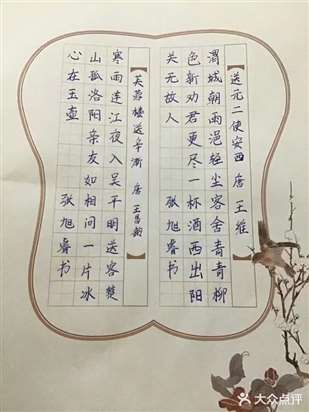 【送元二使安西 唐 王维】
渭城朝雨浥轻尘客舍青青柳
色新劝君更尽一杯酒西出阳
关无故人 张旭睿书
【芙蓉楼送辛渐 唐 王昌龄】
寒雨连江夜入吴平明送客楚
山孤洛阳亲友如相问一片冰
心在玉壶 张旭睿书
大众点评